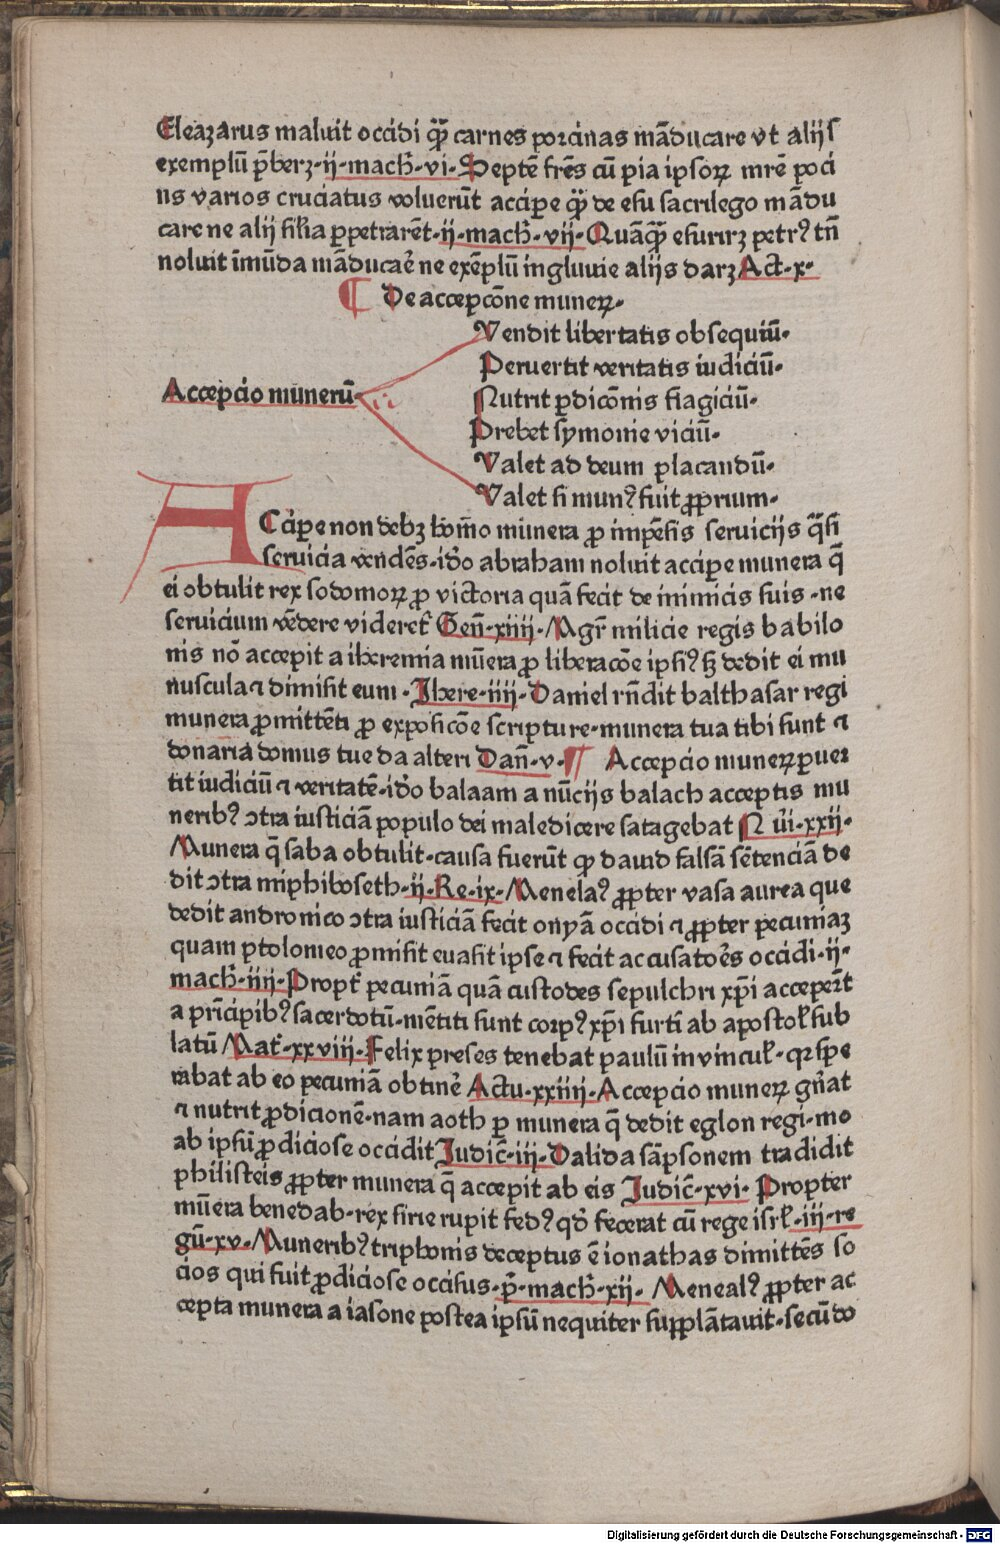 Eleazarus maluit occidi qᷓ carnes porcinas māducare vt alijs
exemplū p̄berꝫ·ij·mach̄·vi·Septē fr̄es cū pia ipsoꝝ mr̄e poci
us varios cruciatus voluerūt accipe qᷓ de esu sacrilego mādu
care ne alij silia ꝑpetrarēt·ij·mach̄·vij·Quāqᷓ esurirꝫ petrꝰ tn̄
noluit īmūda māducaē ne exēplū ingluuie alijs darꝫ Act·x·
¶ De accepcōne muneꝝ·
Vendit libertatis obsequiū·
Peruertit veritatis iudiciū·
Accepcio munerū·
Nutrit ꝓdicōnis flagiciū·
Prebet symonie viciū·
Valet ad deum placandū·
Valet si munꝰ fuit ꝓprium·
ACcipe non debꝫ homo munera ꝓ impēsis seruicijs qᷓsi
seruicia vendēs·iđo abraham noluit accipe munera q̄
ei obtulit rex sodomoꝝ ꝓ victoria quā fecit de inimicis suis ·ne
seruicium vēdere videret᷑ Gen̄·xiiij·Magr̄ milicie regis babilo
nis nō accepit a iheremia mūera ꝓ liberacōe ipsiꝰ sꝫ dedit ei mu
nuscula ⁊ dimisit eum·Jhere·iiij·Daniel rn̄dit balthasar regi
munera ꝓmittēti ꝓ exposicōe scripture·munera tua tibi sunt ⁊
donaria domus tue da alteri Dan̄·v·¶ Accepcio muneꝝ ꝑuer
tit iudiciū ⁊ veritatē·iđo balaam a nūcijs balach acceptis mu
neribꝰ ↄtra iusticiā populo dei maledicere satagebat Nūi·xxij·
Munera q̄ saba obtulit·causa fuerūt qꝓ dauid falsā sētenciā de
dit ↄtra miphiboseth·ij·Re·ix·Menelaꝰ ꝓpter vasa aurea que
dedit andronico ↄtra iusticiā fecit onyā occidi ⁊ ꝓpter pecuniaꝫ
quam ptolomeo ꝓmisit euasit ipse ⁊ fecit accusatoēs occidi·ij·
mach̄·iiij·Propt᷑ pecuniā quā custodes sepulchri xp̄i acceper̄t
a prīcipibꝰ sacerdotū·mētiti sunt corpꝰ xp̄i furti ab apostoł sub
latū Mat᷑·xxviij·Felix preses tenebat paulū in vincuł·qꝛ spe
rabat ab eo pecuniā obtinē Actu·xxiiij·Accepcio muneꝝ gn̄at
⁊ nutrit ꝓdicionē·nam aoth ꝑ munera q̄ dedit eglon regi·mo
ab ipsū ꝓdiciose occidit Judic̄·iij·Dalida sāpsonem tradidit
philisteis ꝓpter munera q̄ accepit ab eis Judic̄·xvi· Propter
mūera benedab·rex sirie rupit fedꝰ qđ fecerat cū rege isrł·iij·re
gū·xv·Muneribꝰ triphonis deceptus ē ionathas dimittēs so
cios qui fuit ꝓdiciose occisus·p̄·mach̄·xij· Menealꝰ ꝓpter ac
cepta munera a iasone postea ipsū nequiter supplātauit·secūdo
Digitalisierung gefördert durch die Deutsche Forschungsgemeinschaft - DFG